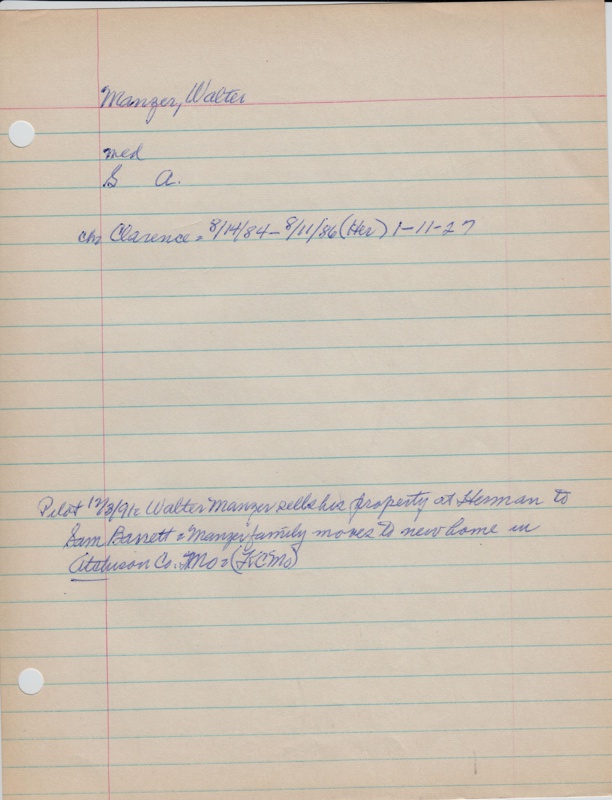 Manzer, Walter
med
S A.
chn Clarence = 8/14/84 - 8/11/86 (Her) 1-11-27
Pilot 12/3/91 = Walter Manzer sells his property at Herman to
Sam Barrett = Manzer family moves to new home in
Atchison Co. Mo =